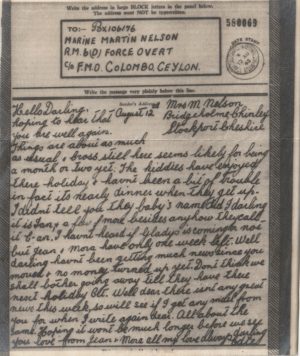 Write the address in large BLOCK letters in the panel below.
The address must NOT be typewritten.
TO:- PBX106196
MARINE MARTIN NELSON
R.M. 6(D) FORCE OVERT
C/o F.M.O. COLOMBO, CEYLON.
560069
Write the message very plainly below this line.
Sender's Address Mrs M. Nelson,
Hello Darling, August 12 Bridgeholme Chinley
hoping to hear that Stockport Cheshire
you are well again.
Things are about as much
as usual & Cross still here seems likely for being
a month or two yet. The kiddies have enjoyed
there holiday & havnt been a bit of trouble
in fact its nearly dinner when they get up.
I didnt tell you they baby's named I darling
it is Ian, a few more besides anyhow they call
it E-an. I havnt heard if Gladys is coming or not
but Jean & Mona have only one week left. Well
darling havnt been getting much news since you
moved & no money turned up yet. Dont think we
shall bother going away till they have there
next holiday Oct. Well dear there isnt any great
news this week, so will see if I get any mail from
you for when I write again dear. All about the
same. Hoping it wont be much longer before we see
you love from Jean & Mona all my love always Darling